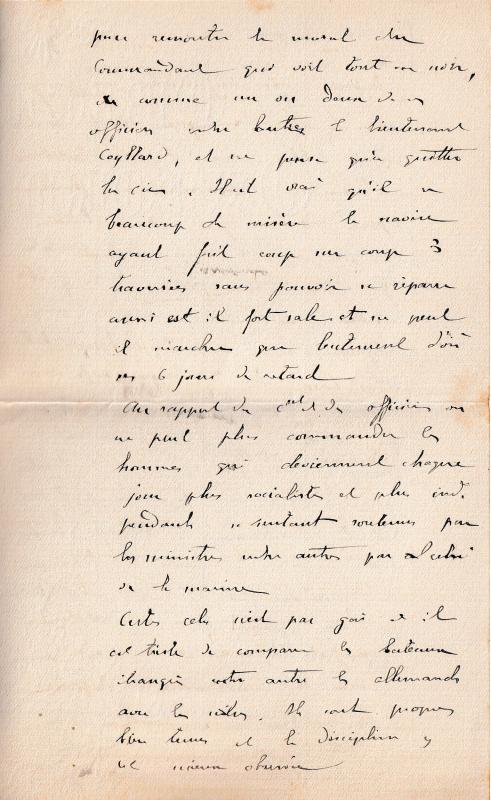 pour remonter le moral du
Commandant qui voit tout en noir,
comme un ou deux de ses
officiers entre autres le lieutenant
et ne pense qu'à quitter
Il est vrai qu'il a
beaucoup de misère le navire
ayant fait coup sur coup 3
traversées sans pouvoir se réparer
aussi est il fort sale et ne peut
il marcher que lentement d'où
ses 6 jours de retard
Au rapport du et des officiers on
ne peut plus commander les
hommes qui deviennent chaque
jour plus socialistes et plus indé-
pendants se sentant soutenus par
les ministres entre autres par celui
de la marine
Certes cela n'est pas gai et il
est triste de comparer les bateaux
étrangers entre autre les allemands
avec les nôtres. Ils sont propres
bien tenus et la discipline y
est mieux observée